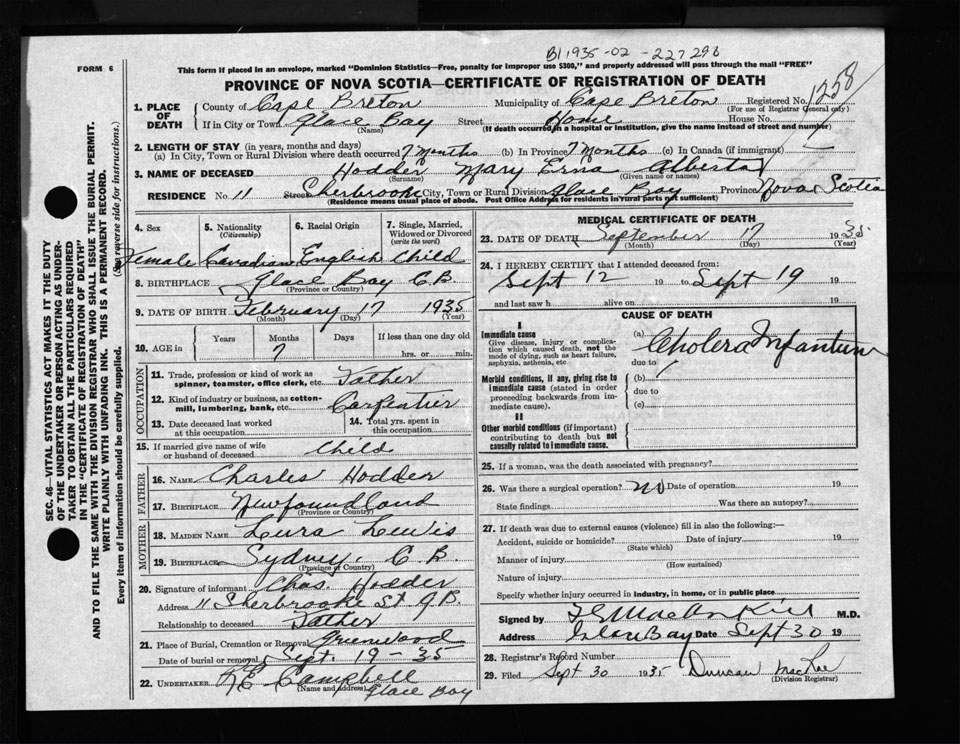 B1 1935-02-227298
FORM 6
This form if placed in an envelope, marked "Dominion Statistics—Free, penalty for improper use $300," and properly addressed will pass through the mail "FREE"
PROVINCE OF NOVA SCOTIA—CERTIFICATE OF REGISTRATION OF DEATH
1258
1. PLACE OF DEATH
County of Cape Breton Municipality of Cape Breton Registered No.
(For use of Registrar General only)
If in City or Town Glace Bay Street Home House No.
(Name) (If death occurred in a hospital or institution, give the name instead of street and number)
2. LENGTH OF STAY (in years, months and days)
(a) In City, Town or Rural Division where death occurred 7 Months (b) In Province 7 Months (c) In Canada (if immigrant)
3. NAME OF DECEASED Hodder Mary Erna Alberta
(Surname) (Given name or names)
RESIDENCE No. 11 Street Sherbrooke City, Town or Rural Division Glace Bay Province Nova Scotia
(Residence means usual place of abode. Post Office Address for residents in rural parts not sufficient)
SEC. 46—VITAL STATISTICS ACT MAKES IT THE DUTY
OF THE UNDERTAKER OR PERSON ACTING AS UNDER-
TAKER TO OBTAIN ALL THE PARTICULARS REQUIRED
IN THE "CERTIFICATE OF REGISTRATION OF DEATH"
AND TO FILE THE SAME WITH THE DIVISION REGISTRAR WHO SHALL ISSUE THE BURIAL PERMIT.
WRITE PLAINLY WITH UNFADING INK. THIS IS A PERMANENT RECORD.
Every item of information should be carefully supplied. (See reverse side for instructions.)
4. Sex 5. Nationality 6. Racial Origin 7. Single, Married,
(Citizenship) Widowed or Divorced
(write the word)
Female Canadian English Child
8. BIRTHPLACE Glace Bay C.B.
(Province or Country)
9. DATE OF BIRTH February 17 1935
(Month) (Day) (Year)
10. AGE in Years Months Days If less than one day old
7 hrs. or min.
OCCUPATION
11. Trade, profession or kind of work as
spinner, teamster, office clerk, etc. Father
12. Kind of industry or business, as cotton-
mill, lumbering, bank, etc. Carpenter
13. Date deceased last worked
at this occupation
14. Total yrs. spent in
this occupation
15. If married give name of wife
or husband of deceased Child
FATHER
16. NAME Charles Hodder
17. BIRTHPLACE Newfoundland
(Province or Country)
MOTHER
18. MAIDEN NAME Lura Lewis
19. BIRTHPLACE Sydney, C.B.
(Province or Country)
20. Signature of informant Chas. Hodder
Address 11 Sherbrooke St G.B.
Relationship to deceased Father
21. Place of Burial, Cremation or Removal Greenwood
Date of burial or removal Sept. 19-35
22. UNDERTAKER Campbell
(Name and address) Glace Bay
MEDICAL CERTIFICATE OF DEATH
23. DATE OF DEATH September 17 1935
(Month) (Day) (Year)
24. I HEREBY CERTIFY that I attended deceased from:
Sept 12 19 to Sept 19 19
and last saw h alive on 19
CAUSE OF DEATH
I
Immediate cause
Give disease, injury or complica-
tion which caused death, not the
mode of dying, such as heart failure,
asphyxia, asthenia, etc
(a) Cholera Infantum
due to
Morbid conditions, if any, giving rise to
immediate cause (stated in order
proceeding backwards from im-
mediate cause).
(b)
due to
(c)
II
Other morbid conditions (if important)
contributing to death but not
causally related to immediate cause.
25. If a woman, was the death associated with pregnancy?
26. Was there a surgical operation? no Date of operation 19
State findings Was there an autopsy?
27. If death was due to external causes (violence) fill in also the following:—
Accident, suicide or homicide? Date of injury 19
(State which)
Manner of injury
(How sustained)
Nature of injury
Specify whether injury occurred in Industry, in home, or in public place
Signed by M.D.
Address Glace Bay Date Sept 30 19
28. Registrar's Record Number
29. Filed Sept 30 1935 Duncan MacRae
(Division Registrar)